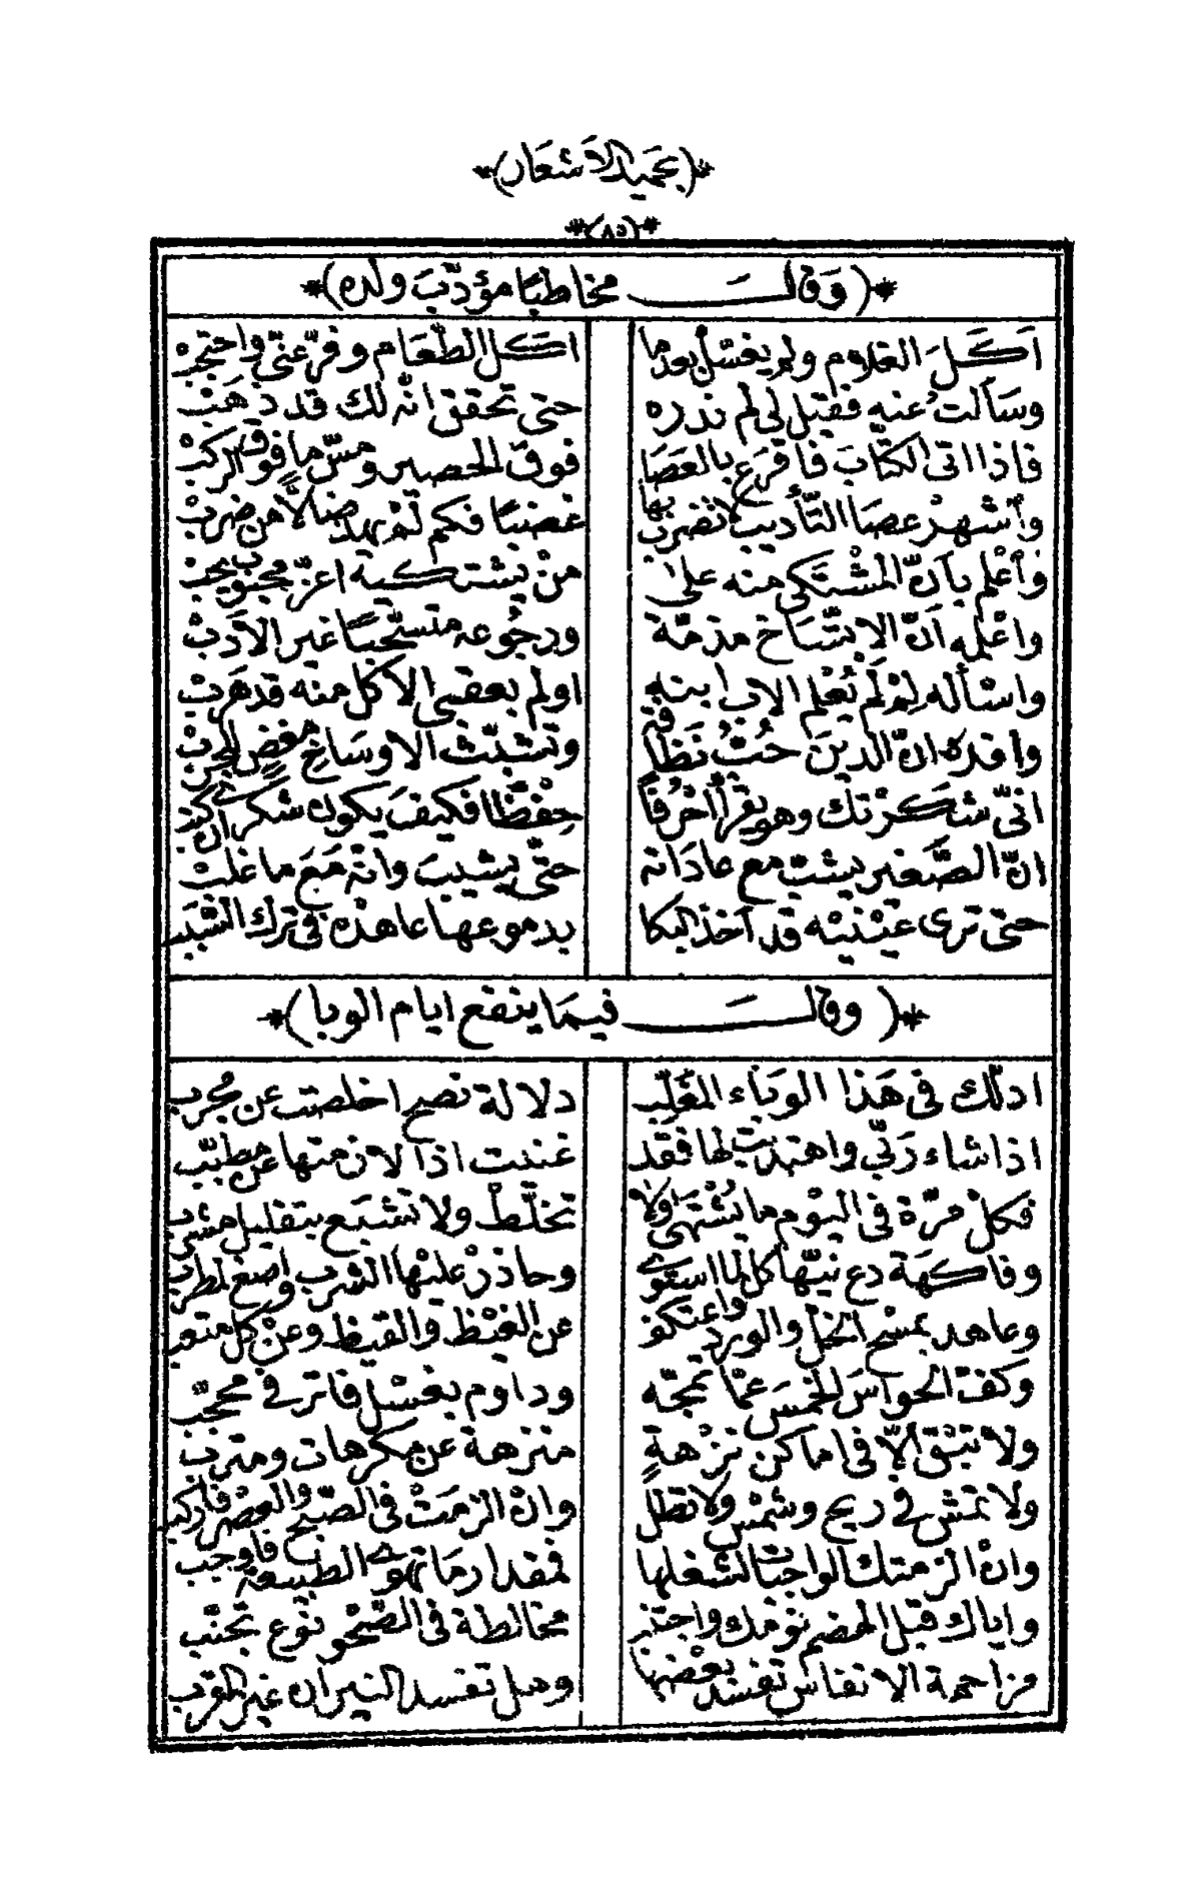 *(بحميد الأشعار)*
*(٨٥)*
*(وَقَالَ مخاطبًا مؤدّبَ ولده)*
اَكَلَ الغلام ولم يغسل بعدما اكل الطّعام وفرّ عنّي واحتجبْ
وسَألتُ عنه فقيل لي لم ندره حتى تحقق انه لك قد ذهَبْ
فاذا اتى الكتّابَ فاقرَع بالعَصَا فوق الحصير ومسّ ما فوق الركبْ
وأشهرْ عصا التّأديب لا تضرب بها غضبًا فكم لم يهد ضالاًّ من ضربْ
وأعْلم بأنّ المشْتكى منه على منْ يشتكيه اعزّ محبوب يحبْ
واعْلمه اَنّ الاتّساخ مذمّة ورجُوعه متسحّبًا غير الاَدبْ
واسْأله لِمْ لَمْ تُعْلم الاب ابنه اولم بعقبى الأكل منه قد هَربْ
وافدهُ انّ الدينَ حُبُّ نَظافة وتشبّث الاوسَاخِ مفضٍ للجربْ
انّي شكَرْتك وهو يقرأُ احْرُفًا حِفْظًا فكيفَ يكون شكري ان كتب
انّ الصّغير يشبّ مع عاداته حتّى يشيبَ وانّه مَعَ ما غلبْ
حتى ترى عيْنيْه قد اَخذ البكا بدموعها عاهدْه في ترك السّبب
*(وقالَ فيمَا ينفع ايام الوبا)*
ادلّك في هَذا الوَباء المغَلّب دلالة نصح اخلصت عن مُجرب
اذا شاء ربّي واهتديت لها فقد غنيت اذًا لان منها عن مطبّب
فكلْ مرّة في اليوْم ما يُشْتهَى ولا تخلّطْ ولا تشبَع بتقليل مشرب
وفاكهَة دع نيّها كل لما استوى وحاذرْ عليْها الشرب واصغ لمطرب
وعاهد بمسْح الخلّ والورد واعتكف عن الغيْظ والقيظ وعنْ كل متعب
وكفّ الحواسّ الخمسَ عمّا تمجّه وداوم بغسْل فاتر في محجّب
ولا تبْقَ الاّ في اماكن نزْهةٍ منزهة عن مكرهات ومترب
ولا تمش في ريح وشمْس ولا تظلّ وانْ الزمَتْ في الصّبح والعصْر فاركب
وانْ الزمتك الواجبات لشغلها فمقدار ما تهوى الطّبيعة فاوجب
واياك قبل الهضم نومك واجتنب مخالطة في الصّحو نوْع تجنّب
مزاحمة الانفاس تفسد بعْضها وهل تفسد النيران غير المقرب